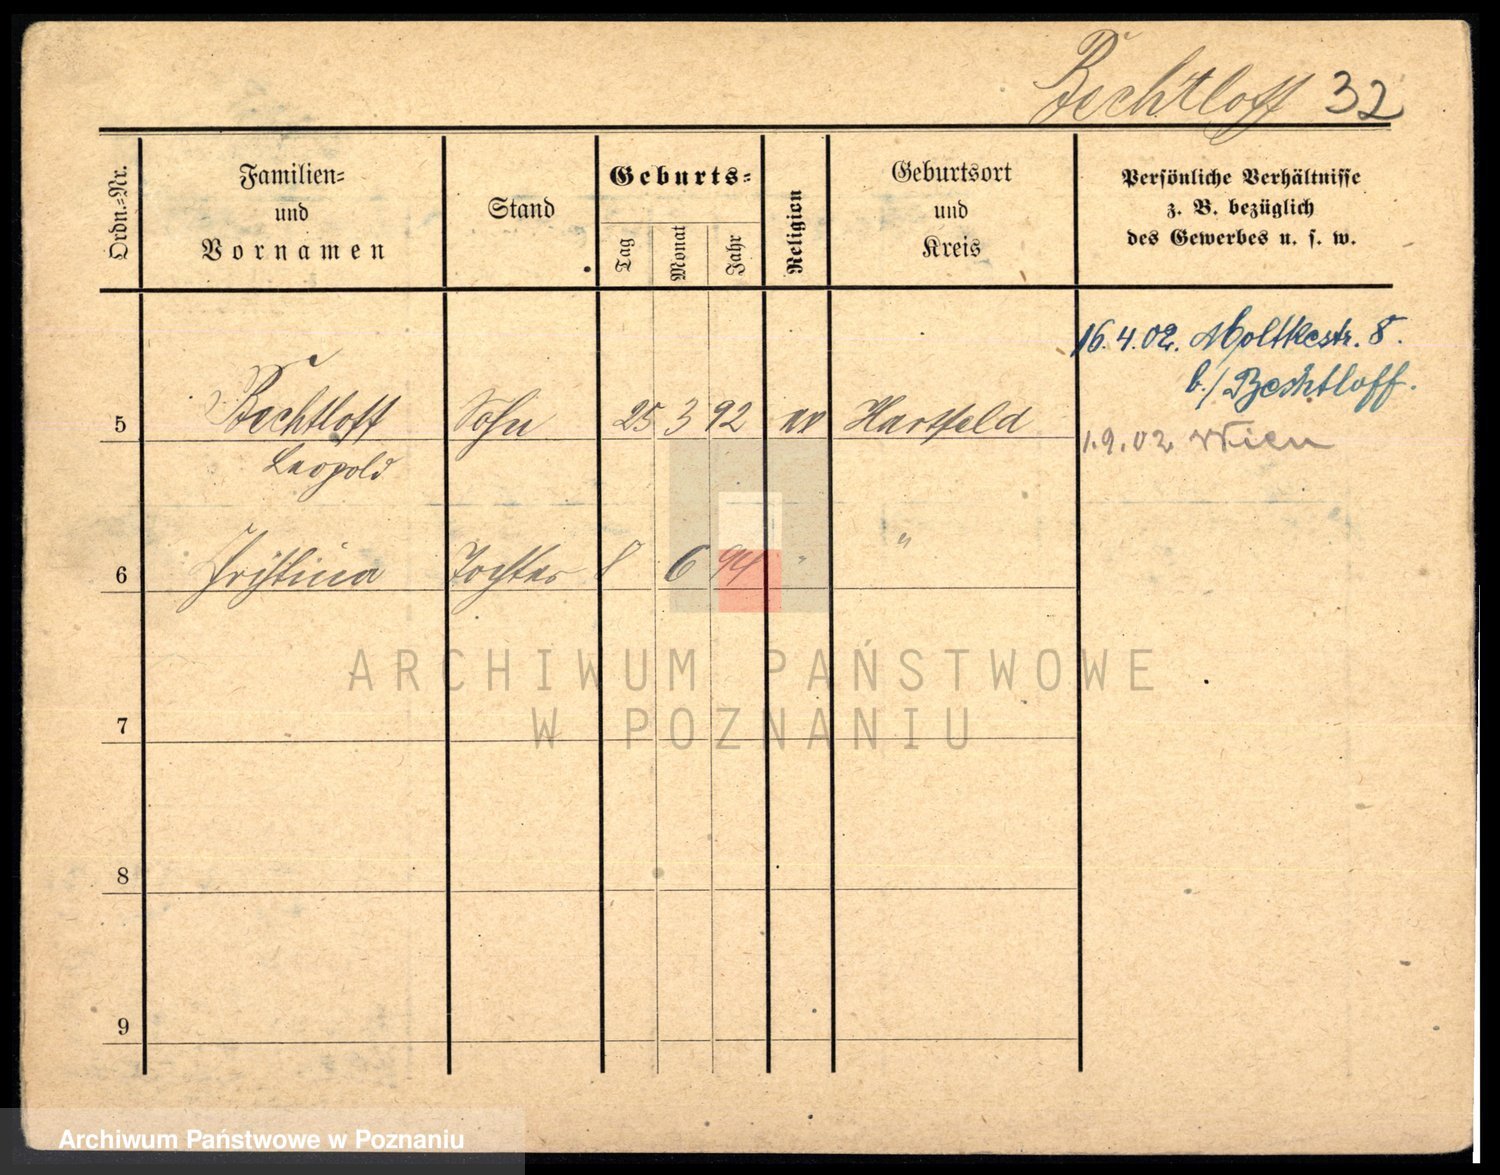 Bechtloff 32
Ordn.-Nr.
Familien-
und
Vornamen
Stand
Geburts-
Tag
Monat
Jahr
Religion
Geburtsort
und
Kreis
Persönliche Verhältnisse
z. B. bezüglich
des Gewerbes u. s. w.
16.4.02. Moltkestr. 8.
b./Bechtloff.
5 Bechtloff Sohn 25 3 92 ev Hartfeld
1.9.02 Wien
Leopold
6 Tochter 8 6 94 " "
ARCHIWUM PAŃSTWOWE
W POZNANIU
7
8
9
Archiwum Państwowe w Poznaniu